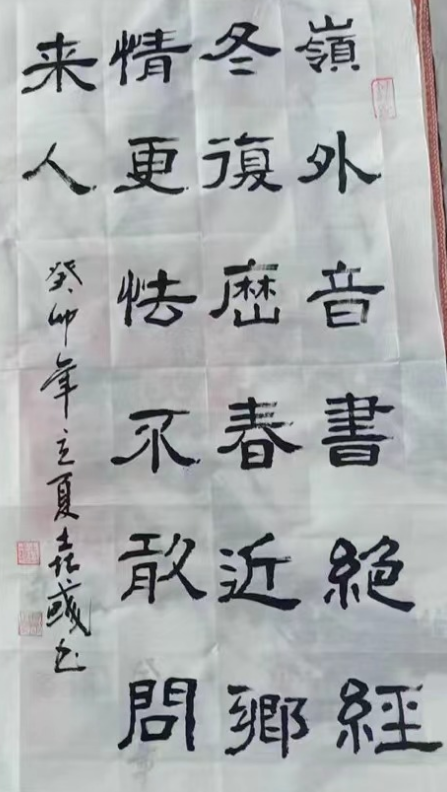 嶺外音書絶經
冬復歷春近鄉
情更怯不敢問
来人
癸卯年立夏